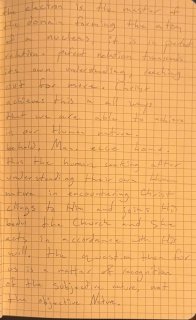 the election is the matter of
the domain forming the atom
nucleus, it is a
relation transcends
its own understanding, reaching
out for mercy. Christ
achieves this in all ways
that we are able to achieve
in our Human nature.
behold, Man, ecce homo.
this the human seeking after
understanding their own Human
nature in encountering Christ
clings to Him and joins His
body the Church and She
acts in accordance with His
will. The question then for
us is a matter of recognition
of the subjective nature, not
the objective Nature.